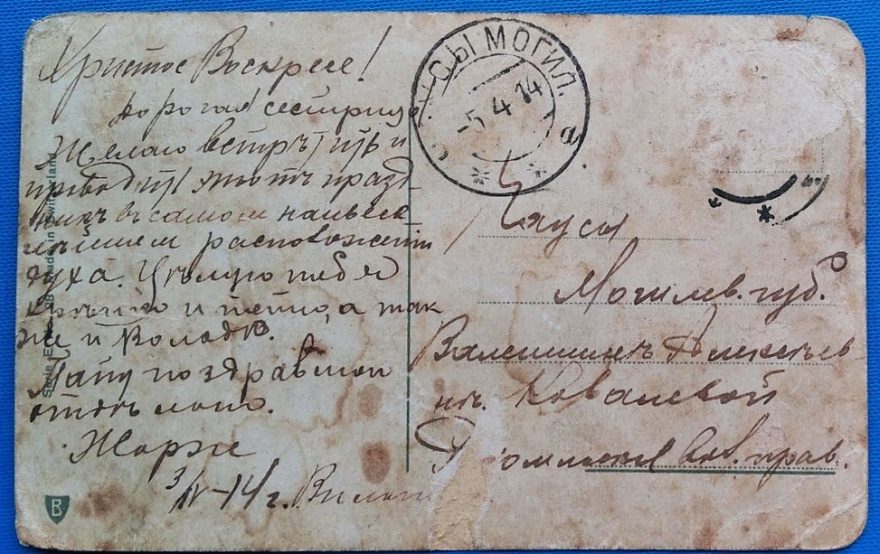 Христос Воскресе!
дорогая сестрица
Желаю встрѣтить и
проводить этотъ празд
никъ въ самомъ наивесе
лѣйшем расположеніи
духа. Цѣлую тебя
крѣпко и тетю, а так
же и Володю.
Папу поздравляю
Жоржъ
3/IV-14 г. Вильна
B
СЫ МОГИЛ.
-5 4 14
Чаусы
Могилев. губ.
Валентинѣ Алексѣев
нѣ Ковалевой